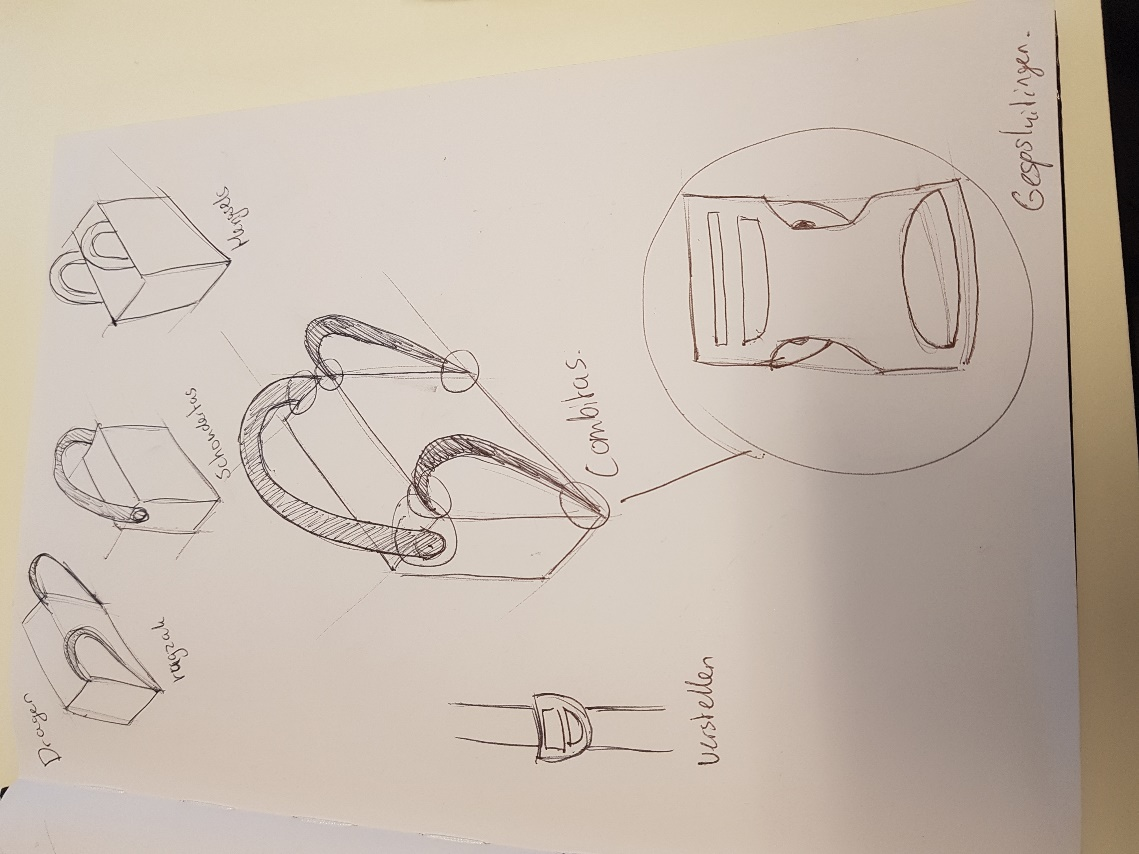 Dragen
rugzak
Schoudertas
Hengsels
Combitas.
Verstellen
Gespsluitingen.